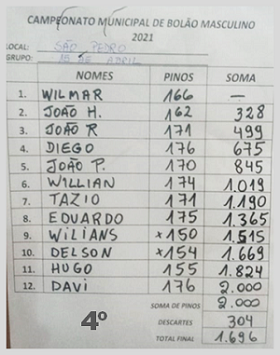 CAMPEONATO MUNICIPAL DE BOLÃO MASCULINO
2021
LOCAL: SÃO PEDRO
GRUPO: 15 DE ABRIL
NOMES PINOS SOMA
1. WILMAR 166 —
2. JOÃO H. 162 328
3. JOÃO R 171 499
4. DIEGO 176 675
5. JOÃO P. 170 845
6. WILLIAN 174 1.019
7. TAZIO 171 1.190
8. EDUARDO 175 1.365
9. WILIANS ×150 1.515
10. DELSON ×154 1.669
11. HUGO 155 1.824
12. DAVI 176 2.000
SOMA DE PINOS 2.000
DESCARTES 304
TOTAL FINAL 1.696
4º